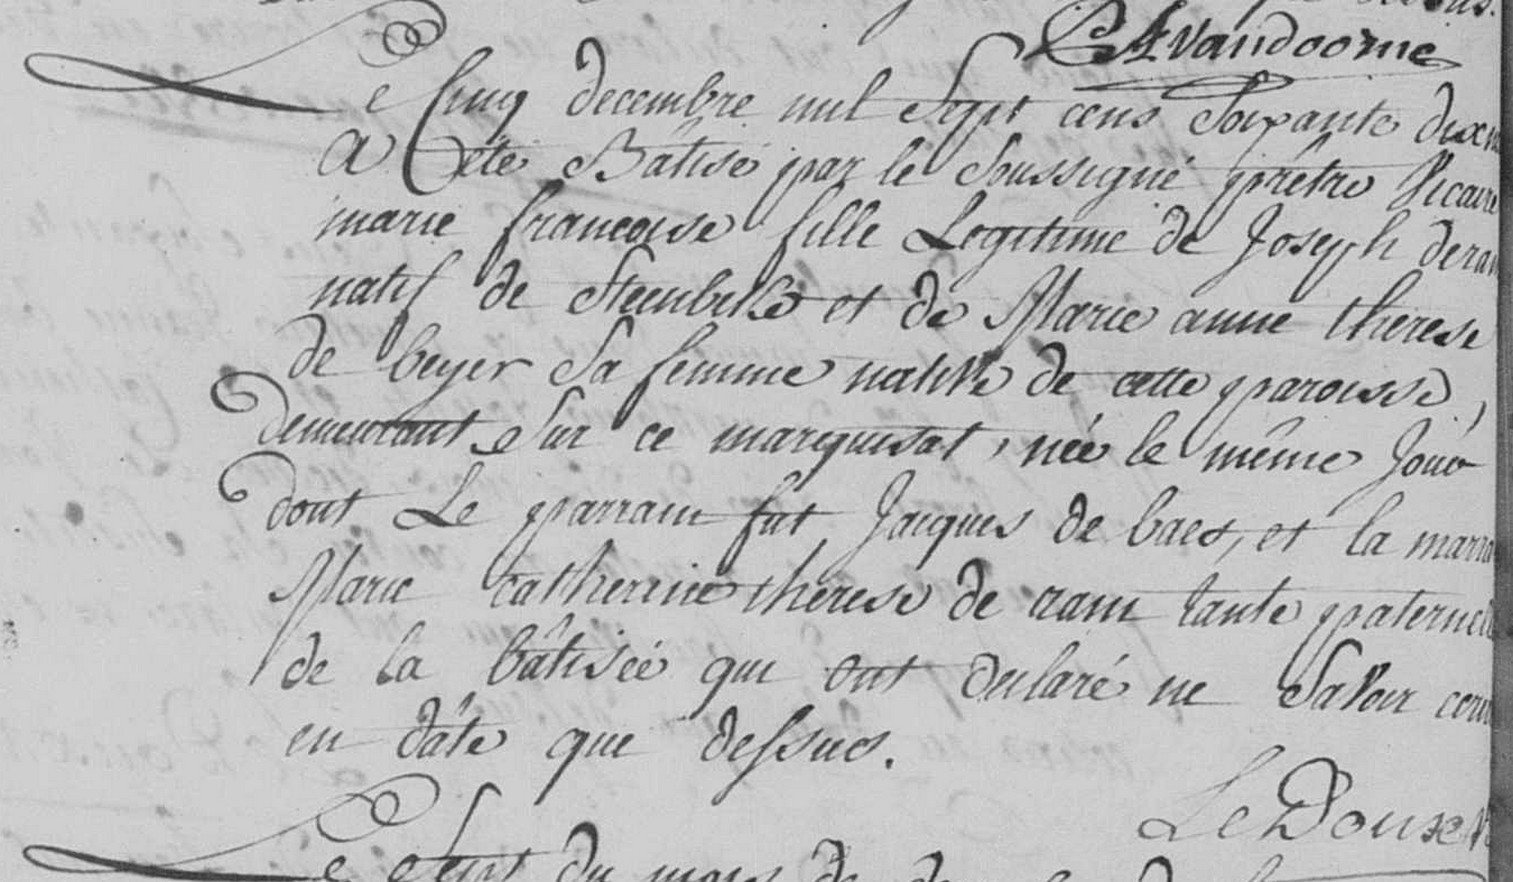 C A Vandoorne
Le Cinq decembre mil Sept cens Soixante dix
a Eté Bâtisé par le Soussigné prêtre Vicaire
marie francoise fille Legitime de Joseph deram
natif de Steenbeke et de Marie anne therese
de beyer Sa femme native de cette paroisse,
demeurant Sur ce marquisat, née le même Jour
dont Le parrain fut Jacques de baes, et la marra
Marie catherine therese de ram tante paternelle
de la bâtisée qui ont declaré ne Savoir ecrire
en dâte que dessus.
Le Doux
Le Sept du mois de